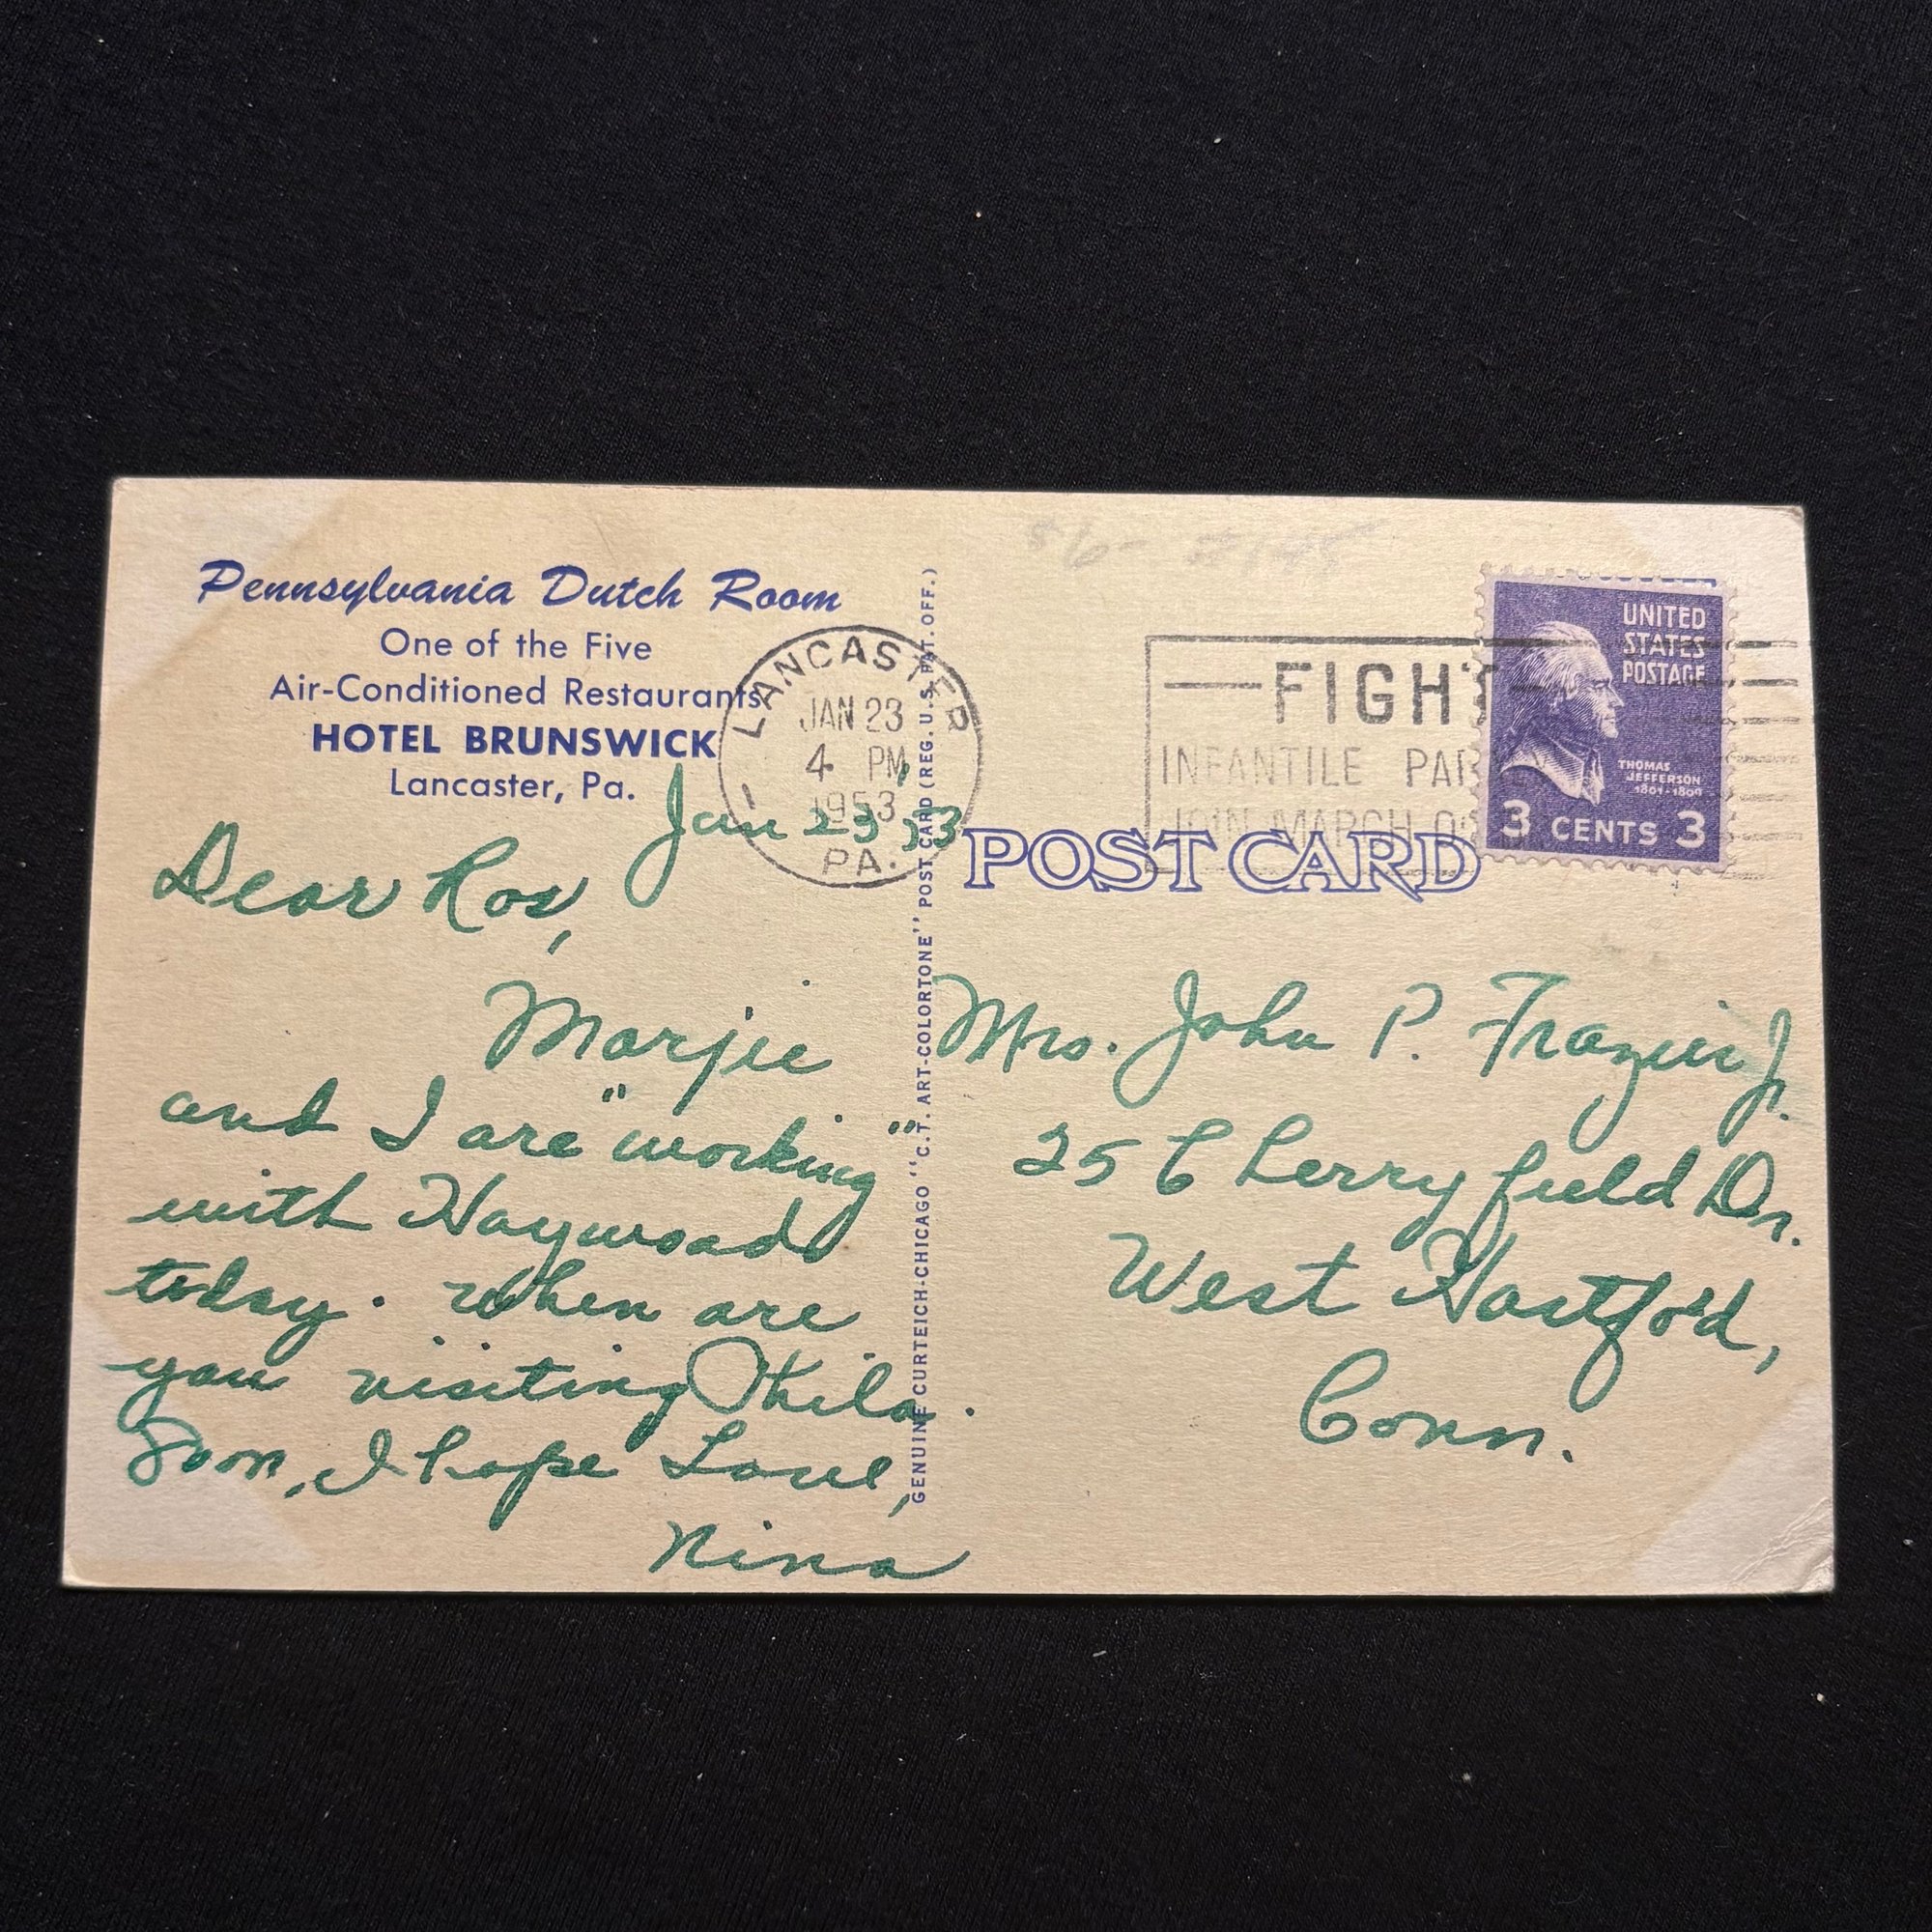 Pennsylvania Dutch Room
One of the Five
Air-Conditioned Restaurants
HOTEL BRUNSWICK
Lancaster, Pa.
Jan 23, 53
Dear Ros,
Marjie
and I are "working"
with Haywoods
today. When are
you visiting Phila.
Soon, I hope Love,
Nina
LANCASTER
JAN 23
4 PM
1953
PA.
GENUINE CURTEICH-CHICAGO "C.T. ART-COLORTONE" POST CARD (REG. U.S. PAT. OFF.)
$6-
FIGHT
INFANTILE PAR
JOIN MARCH OF
UNITED
STATES
POSTAGE
THOMAS
JEFFERSON
1801-1809
3 CENTS 3
POST CARD
Mrs. John P. Frazier Jr.
25 Cherryfield Dr.
West Hartford,
Conn.